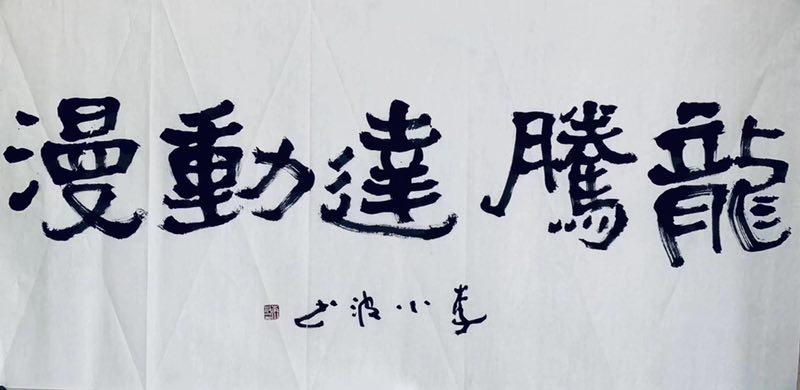 龍騰達動漫
李小波书